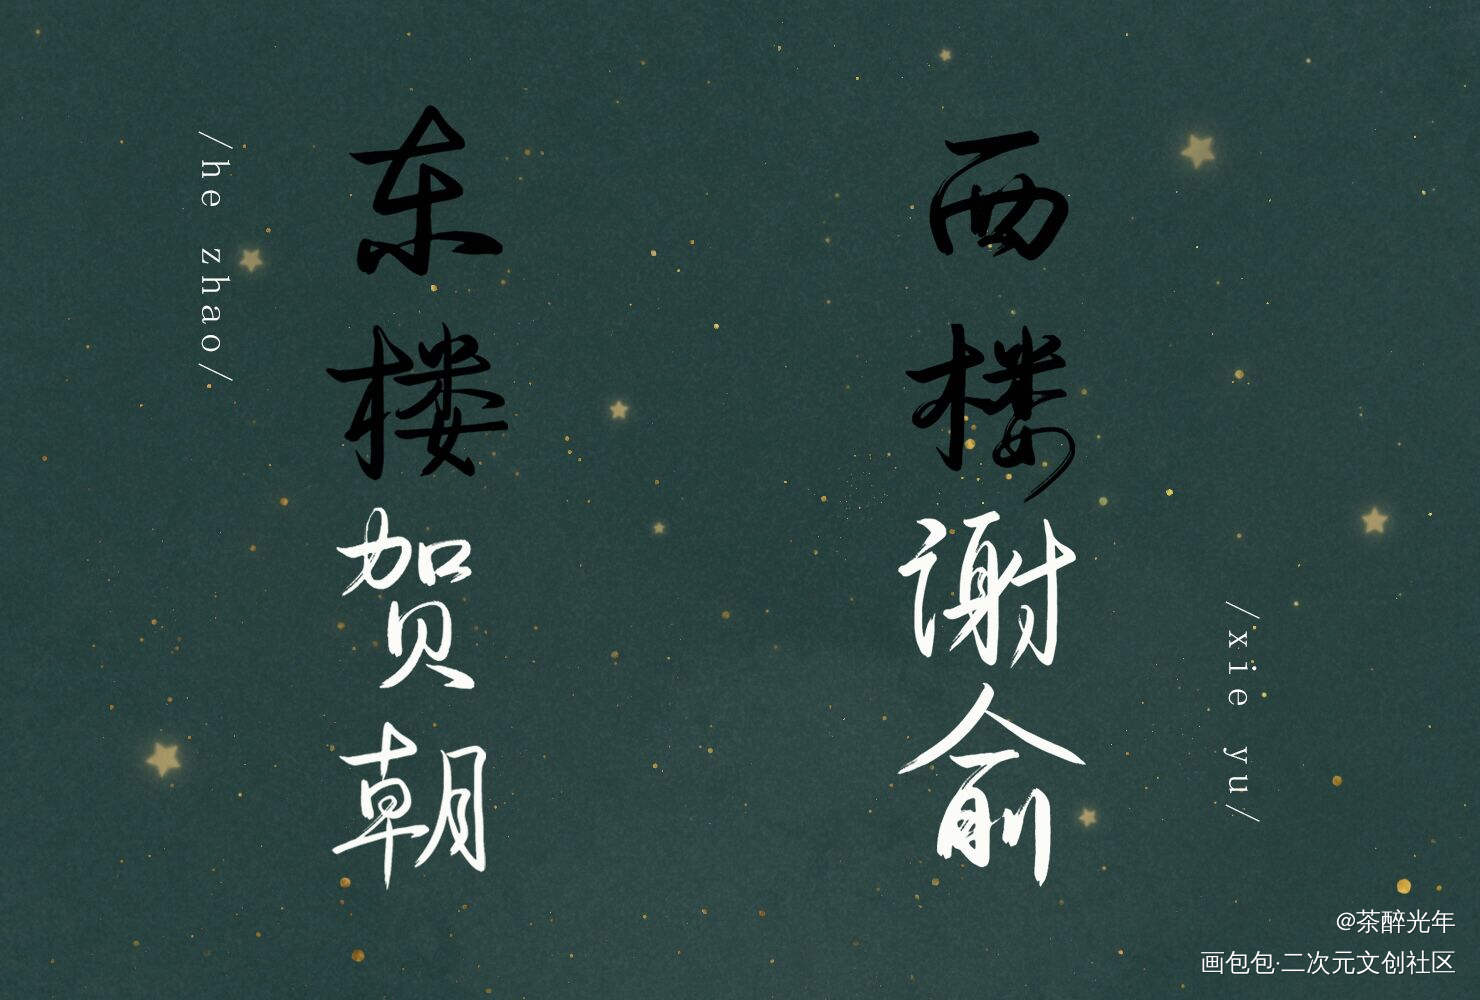 /he zhao/
东楼
贺朝
西楼
谢俞
/xie yu/
@茶醉光年
画包包·二次元文创社区